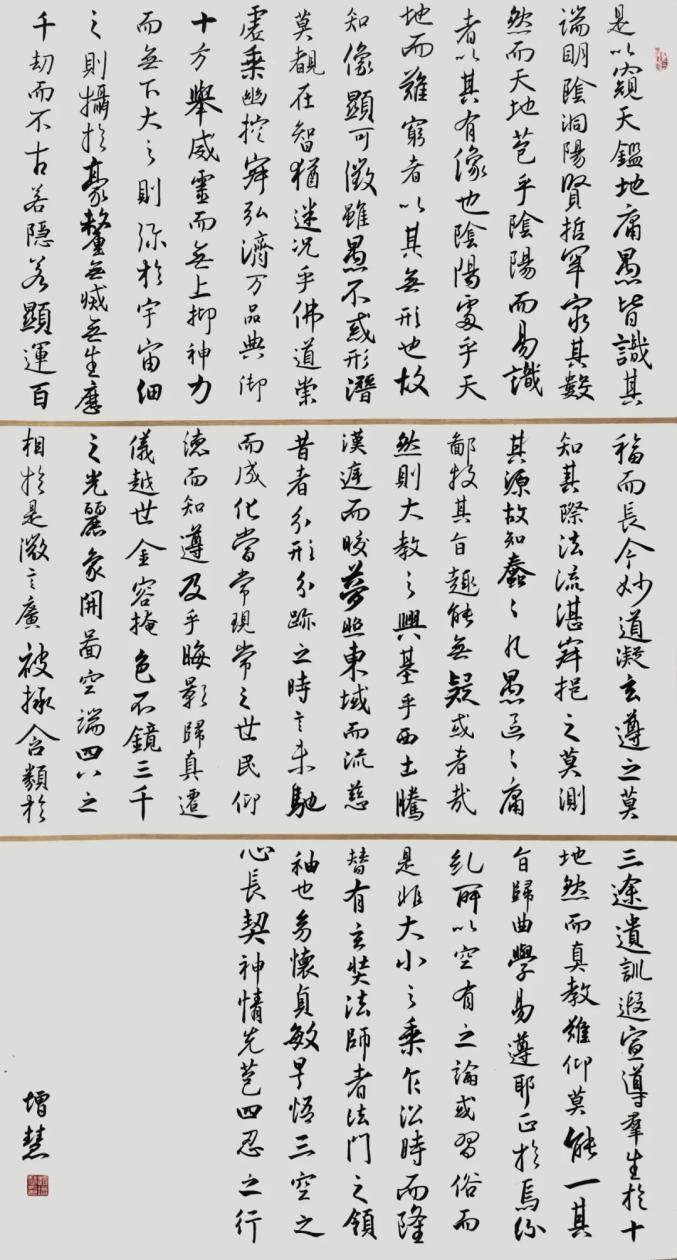 是以窺天鑑地庸愚皆識其
端明陰洞陽賢哲罕窮其數
然而天地苞乎陰陽而易識
者以其有像也陰陽處乎天
地而難窮者以其無形也故
知像顯可徵雖愚不惑形潛
莫覩在智猶迷況乎佛道崇
虛乘幽控寂弘濟万品典御
十方舉威靈而無上抑神力
而無下大之則弥於宇宙細
之則攝於豪釐無滅無生歷
千劫而不古若隱若顯運百
福而長今妙道凝玄遵之莫
知其際法流湛寂挹之莫測
其源故知蠢々凡愚區々庸
鄙投其旨趣能無疑或者哉
然則大教之興基乎西土騰
漢庭而皎夢照東域而流慈
昔者分形分跡之時言未馳
而成化當常現常之世民仰
德而知遵及乎晦影歸真遷
儀越世金容掩色不鏡三千
之光麗象開圖空端四八之
相於是微言廣被拯含類於
三途遺訓遐宣導群生於十
地然而真教難仰莫能一其
旨歸曲學易遵耶正於焉紛
糺所以空有之論或習俗而
是非大小之乘乍沿時而隆
替有玄奘法師者法門之領
袖也幼懷貞敏早悟三空之
心長契神情先苞四忍之行
增慧